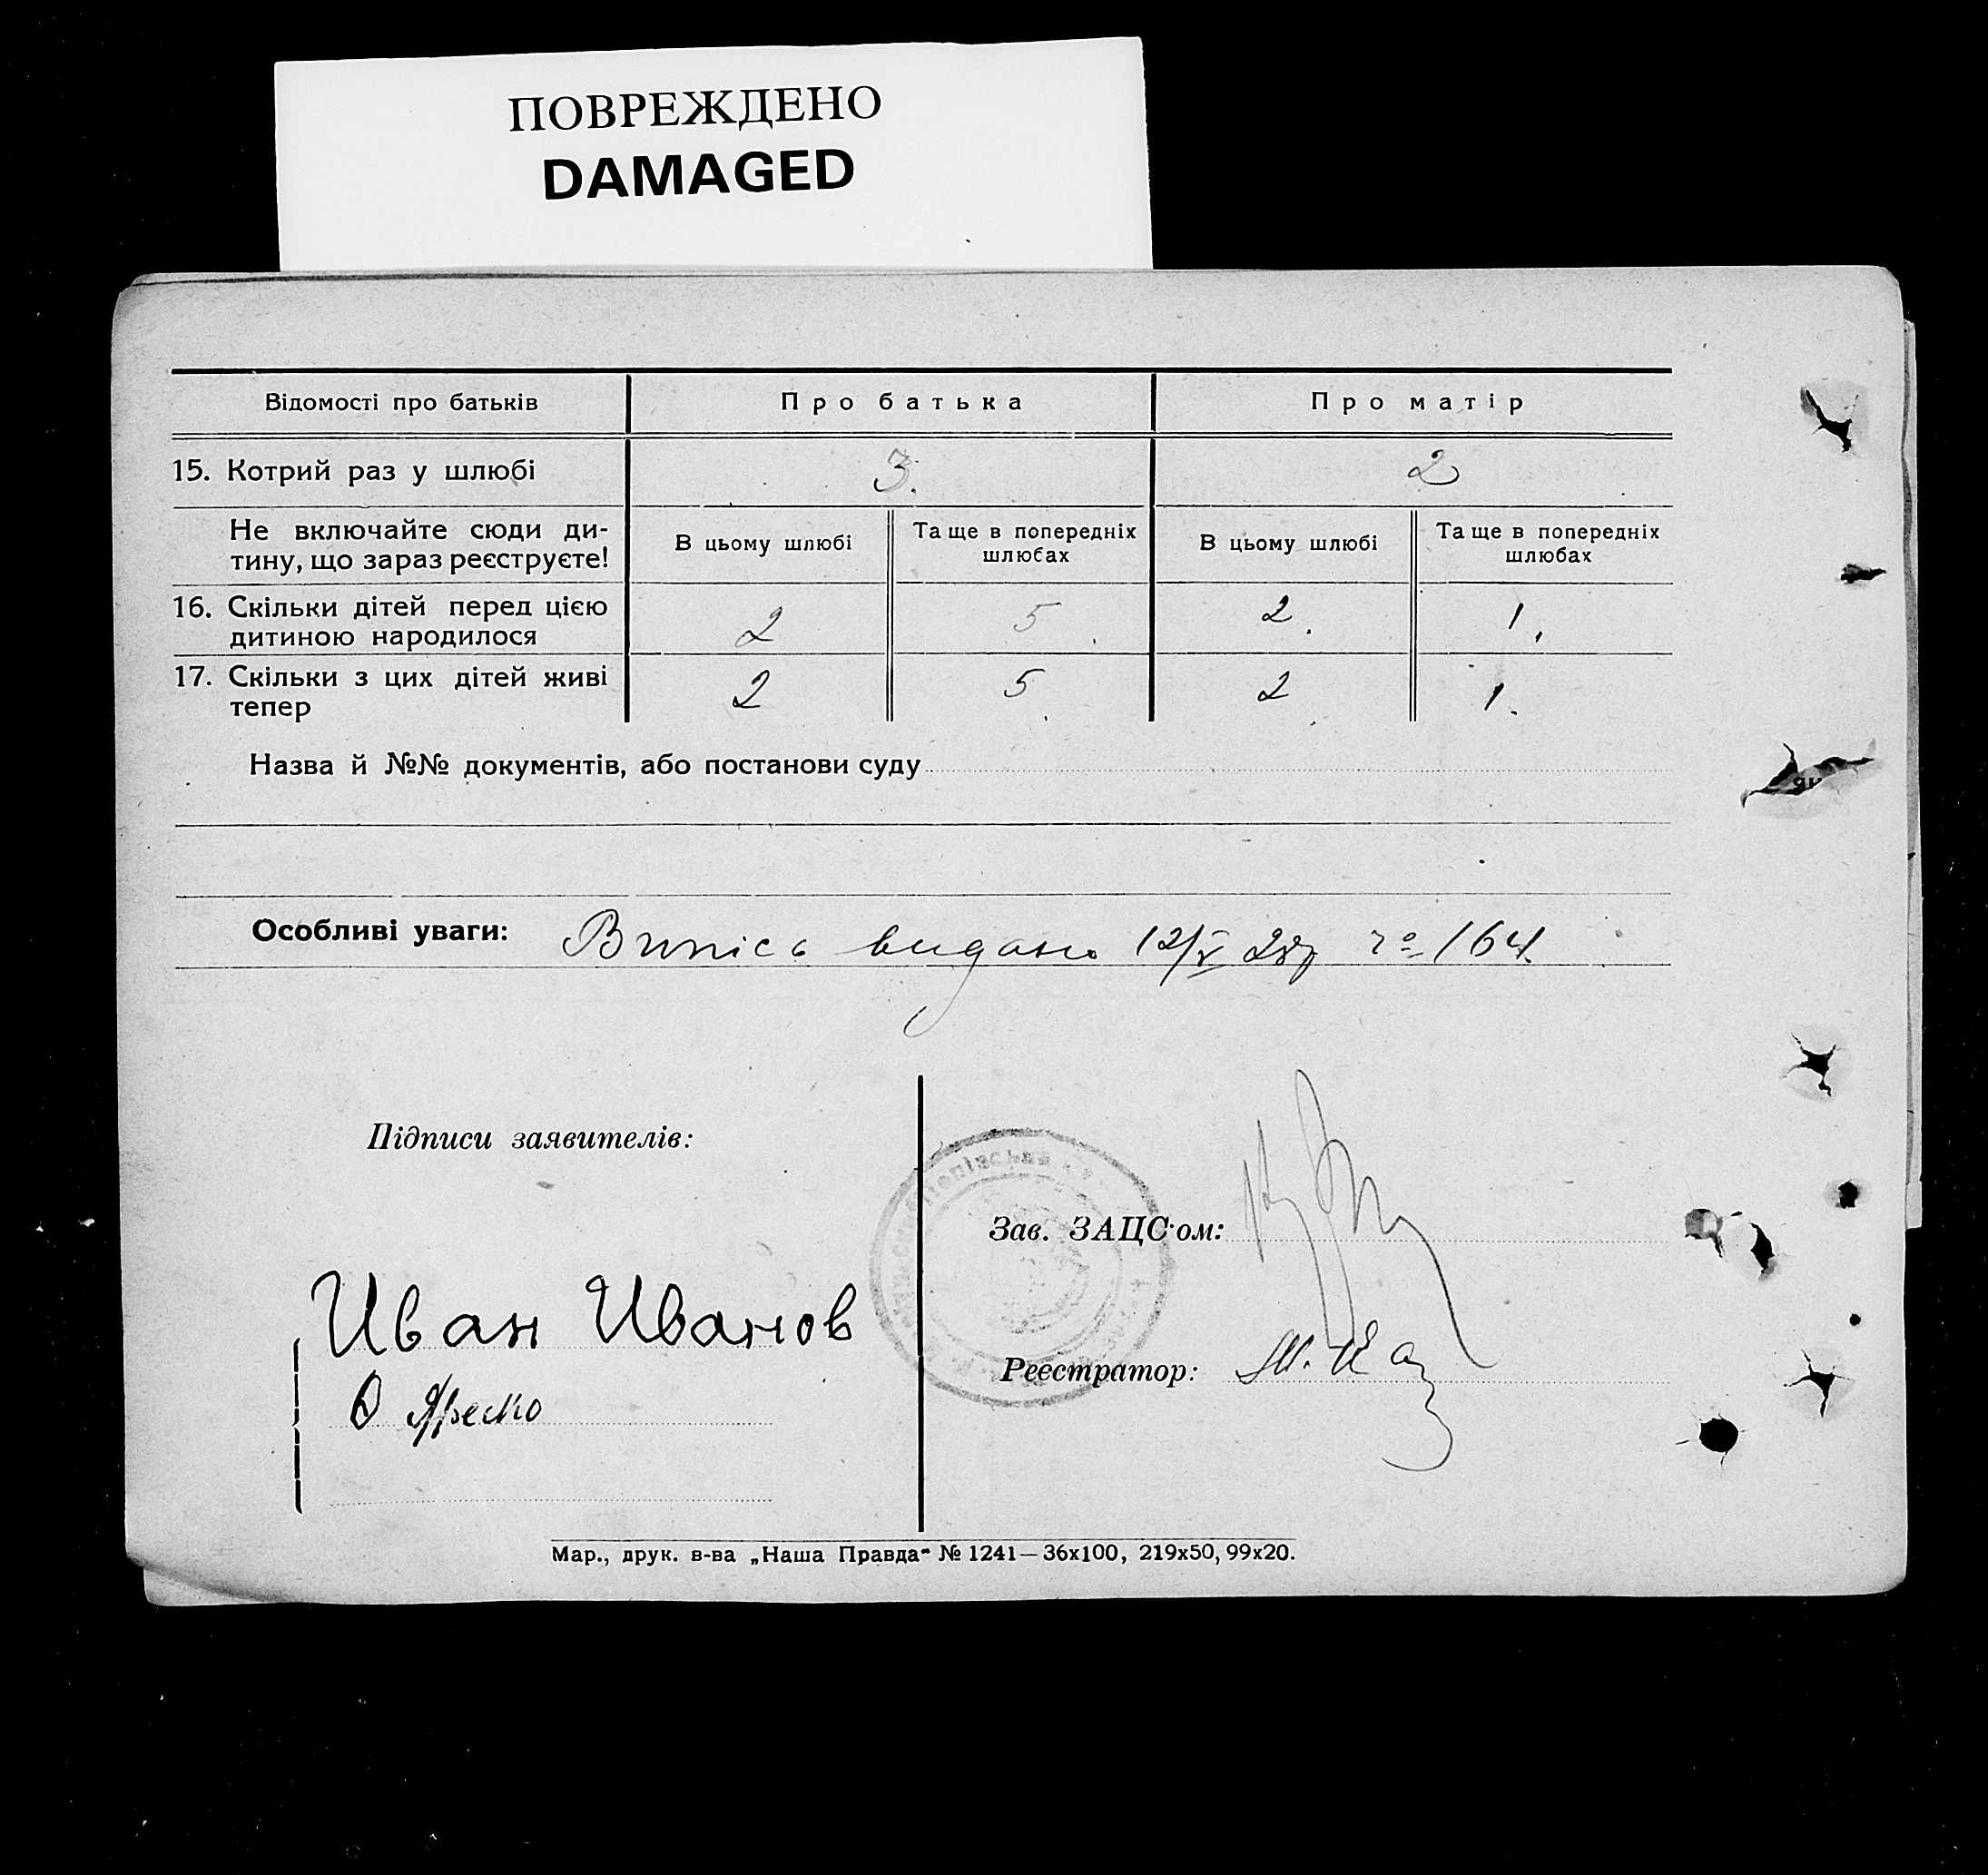 ПОВРЕЖДЕНО
DAMAGED
Відомості про батьків
Про батька
Про матір
15. Котрий раз у шлюбі
3.
2
Не включайте сюди ди-
тину, що зараз реєструєте!
В цьому шлюбі
Та ще в попередніх
шлюбах
В цьому шлюбі
Та ще в попередніх
шлюбах
16. Скільки дітей перед цією
дитиною народилося
2
5
2
1
17. Скільки з цих дітей живі
тепер
2
5
2
1
Назва й №№ документів, або постанови суду
Особливі уваги: Випісь видано 12/V 28р № 164.
Підписи заявителів:
Иван Иванов
О Яреско
Зав. ЗАЦС'ом:
Реєстратор:
Мар., друк. в-ва „Наша Правда" № 1241—36х100, 219х50, 99х20.